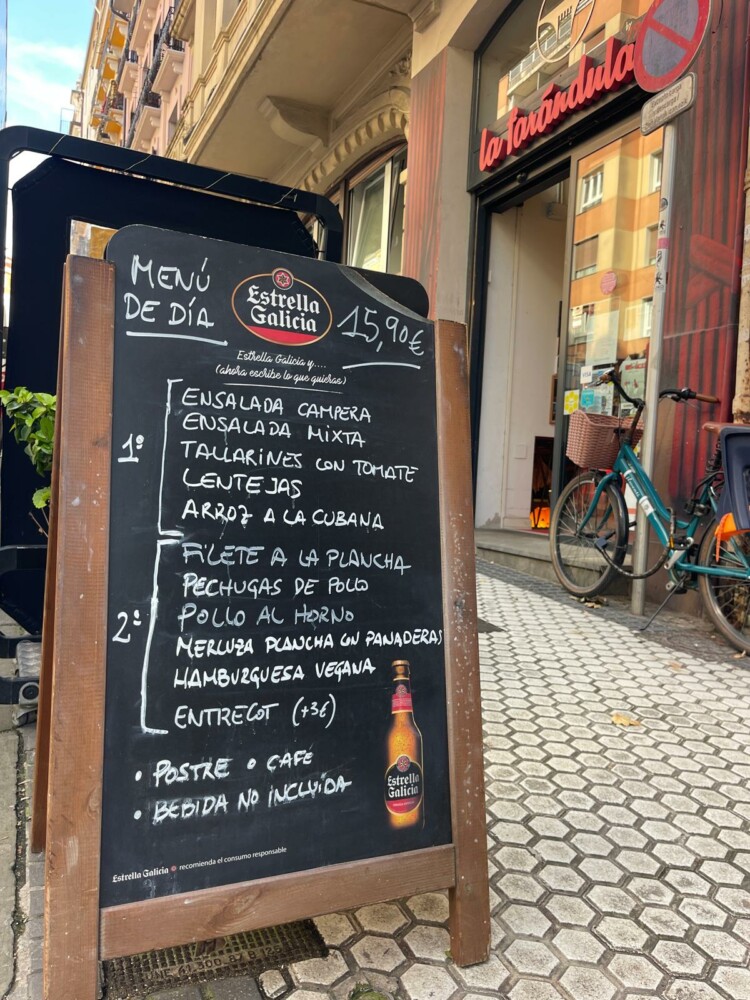 la tarándula
MENÚ
DE DÍA
Estrella
Galicia
15,90€
Estrella Galicia y....
(ahora escribe lo que quieras)
1º
ENSALADA CAMPERA
ENSALADA MIXTA
TALLARINES CON TOMATE
LENTEJAS
ARROZ A LA CUBANA
2º
FILETE A LA PLANCHA
PECHUGAS DE POLLO
POLLO AL HORNO
MERLUZA PLANCHA CON PANADERAS
HAMBURGUESA VEGANA
ENTRECOT (+3€)
• POSTRE O CAFÉ
• BEBIDA NO INCLUÍDA
Estrella
Galicia
Estrella Galicia recomienda el consumo responsable